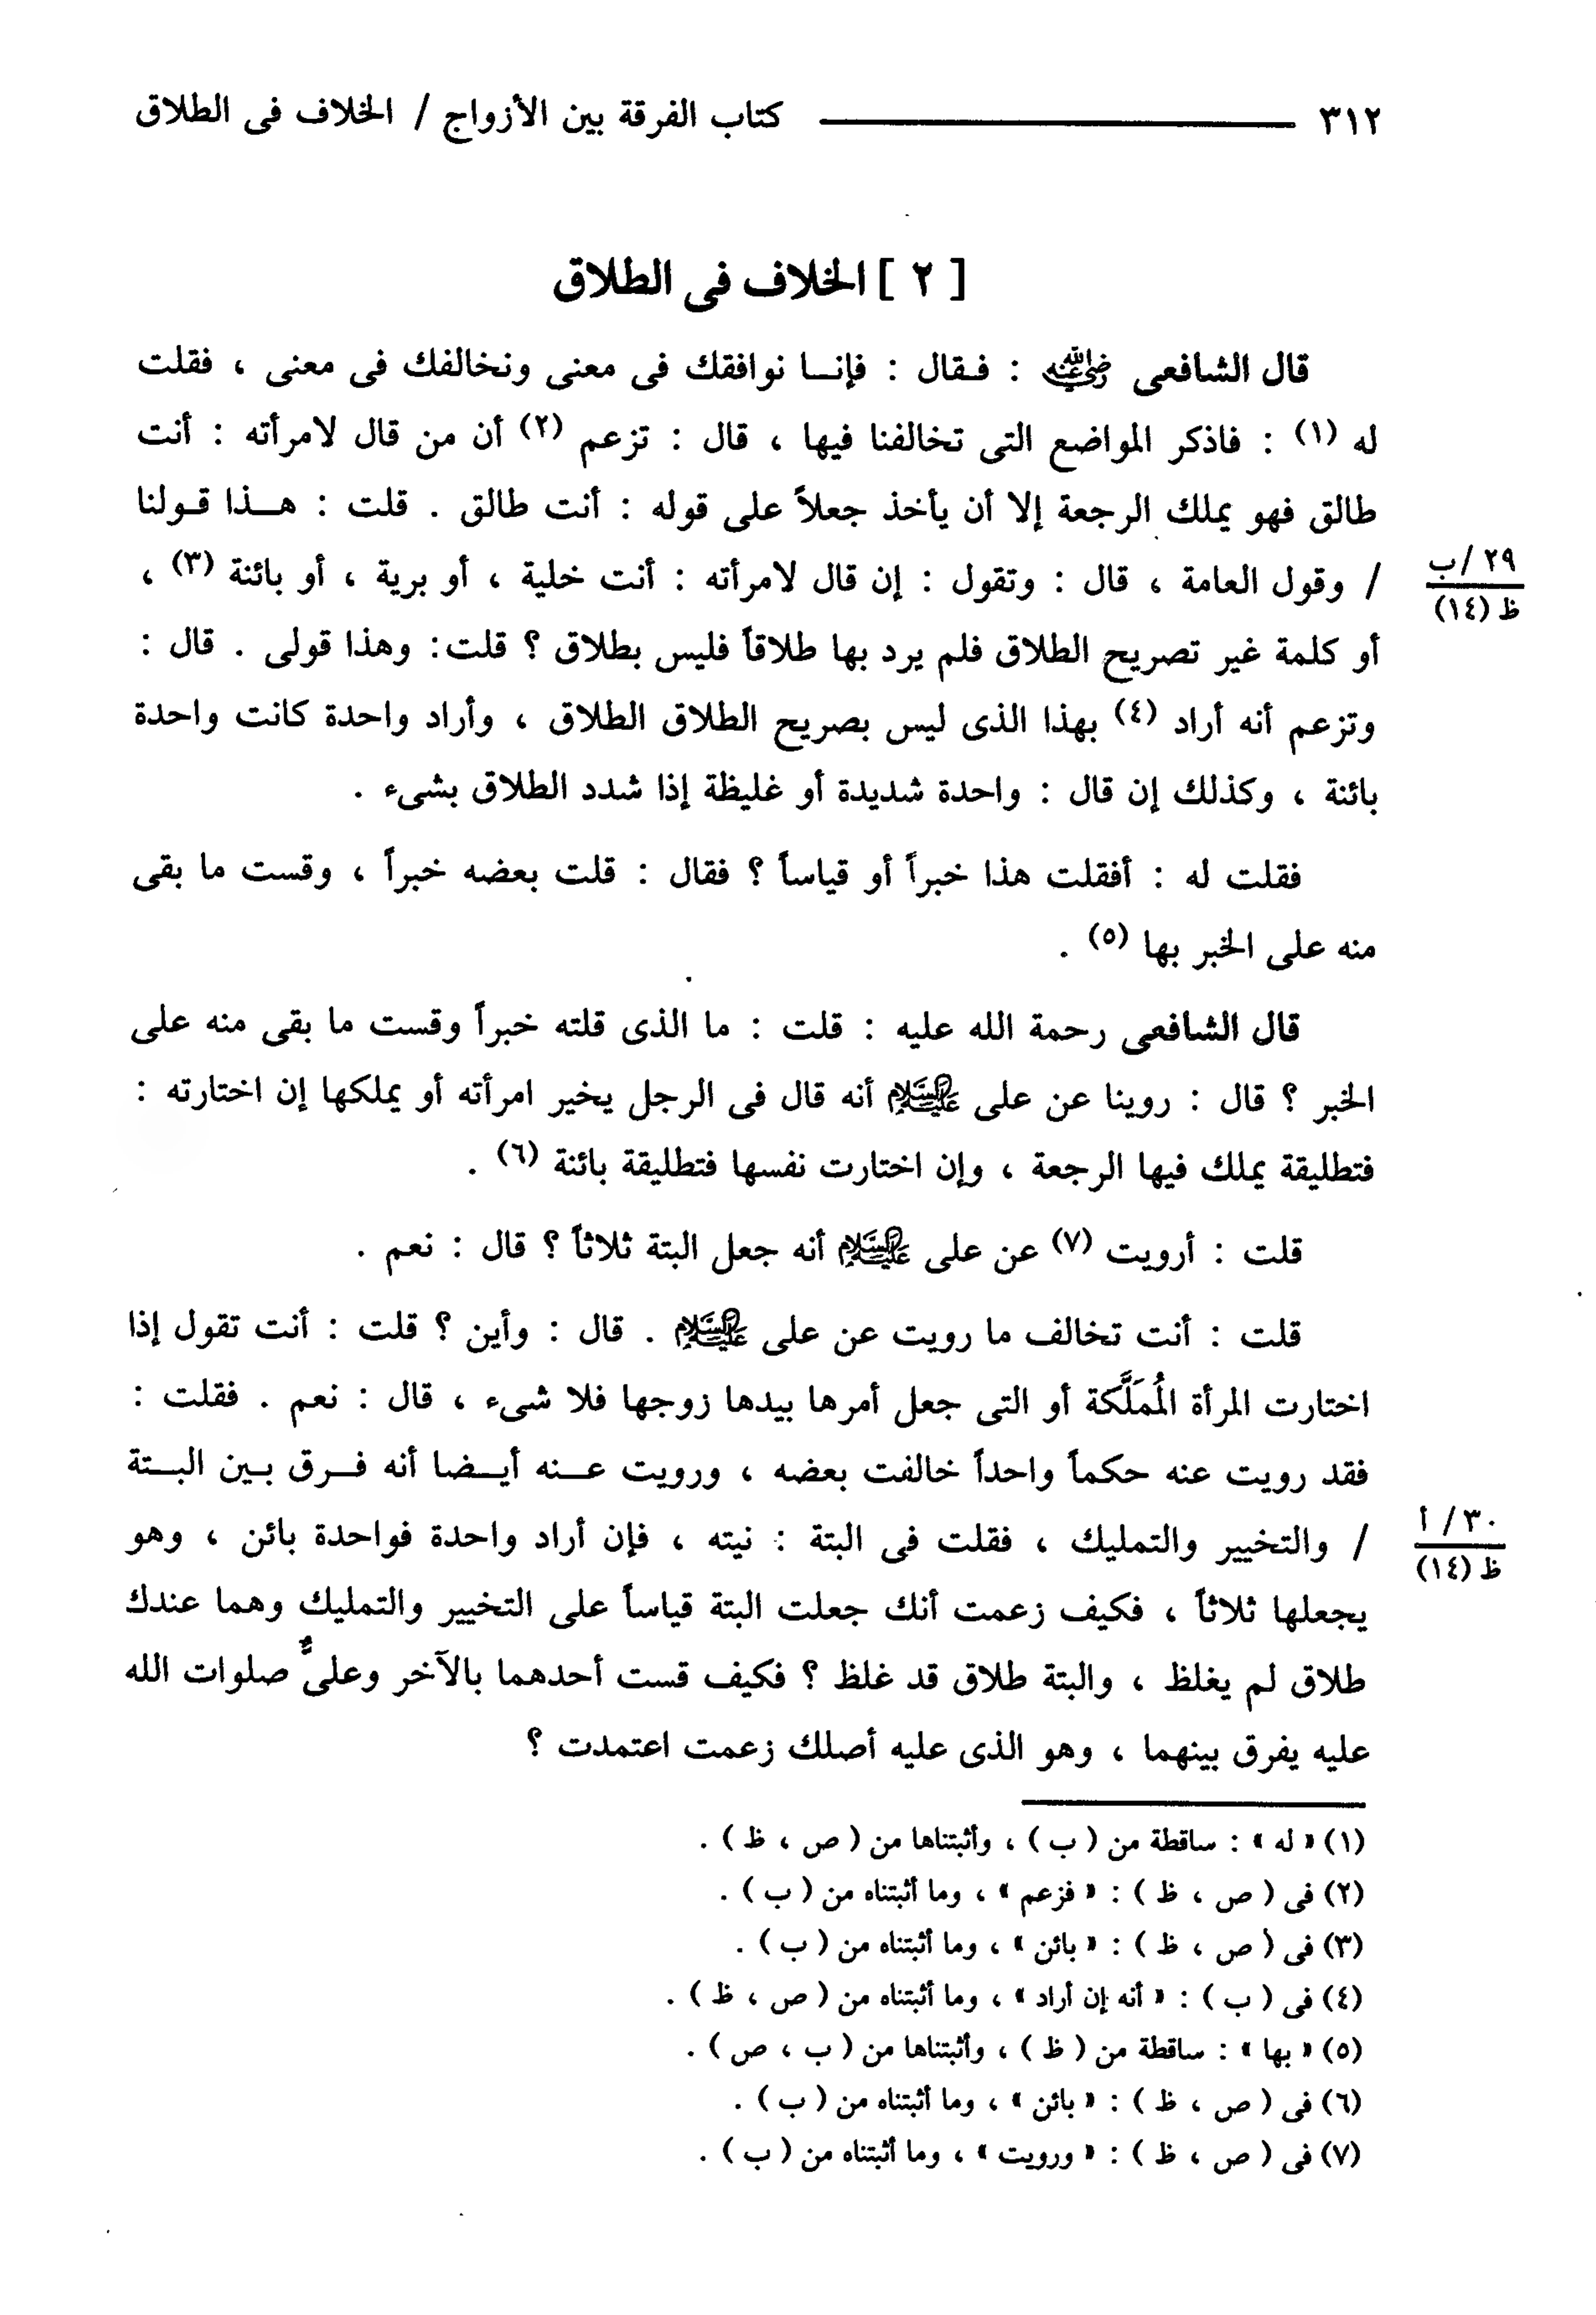 ٣١٢ كتاب الفرقة بين الأزواج / الخلاف فى الطلاق
[ ٢ ] الخلاف فى الطلاق
قال الشافعى رضي الله عنه : فـقال : فإنـا نوافقك فى معنى ونخالفك فى معنى ، فقلت
له (١) : فاذكر المواضع التى تخالفنا فيها ، قال : تزعم (٢) أن من قال لامرأته : أنت
طالق فهو يملك الرجعة إلا أن يأخذ جعلاً على قوله : أنت طالق . قلت : هـذا قـولنا
/ وقول العامة ، قال : وتقول : إن قال لامرأته : أنت خلية ، أو برية ، أو بائنة (٣) ،
٢٩/ب
ظ (١٤)
أو كلمة غير تصريح الطلاق فلم يرد بها طلاقاً فليس بطلاق ؟ قلت: وهذا قولى . قال :
وتزعم أنه أراد (٤) بهذا الذى ليس بصريح الطلاق الطلاق ، وأراد واحدة كانت واحدة
بائنة ، وكذلك إن قال : واحدة شديدة أو غليظة إذا شدد الطلاق بشىء .
فقلت له : أفقلت هذا خبراً أو قياساً ؟ فقال : قلت بعضه خبراً ، وقست ما بقى
منه على الخبر بها (٥) .
قال الشافعى رحمة الله عليه : قلت : ما الذى قلته خبراً وقست ما بقى منه على
الخبر ؟ قال : روينا عن على عليه السلام أنه قال فى الرجل يخير امرأته أو يملكها إن اختارته :
فتطليقة يملك فيها الرجعة ، وإن اختارت نفسها فتطليقة بائنة (٦) .
قلت : أرويت (٧) عن على عليه السلام أنه جعل البتة ثلاثاً ؟ قال : نعم .
قلت : أنت تخالف ما رويت عن على عليه السلام . قال : وأين ؟ قلت : أنت تقول إذا
اختارت المرأة المُمَلَّكة أو التى جعل أمرها بيدها زوجها فلا شىء ، قال : نعم . فقلت :
فقد رويت عنه حكماً واحداً خالفت بعضه ، ورويت عـنه أيـضا أنه فـرق بـين البـتة
/ والتخيير والتمليك ، فقلت فى البتة : نيته ، فإن أراد واحدة فواحدة بائن ، وهو
٣٠/ أ
ظ (١٤)
يجعلها ثلاثاً ، فكيف زعمت أنك جعلت البتة قياساً على التخيير والتمليك وهما عندك
طلاق لم يغلظ ، والبتة طلاق قد غلظ ؟ فكيف قست أحدهما بالآخر وعلىٌّ صلوات الله
عليه يفرق بينهما ، وهو الذى عليه أصلك زعمت اعتمدت ؟
(١) « له » : ساقطة من ( ب ) ، وأثبتناها من ( ص ، ظ ) .
(٢) فى ( ص ، ظ ) : « فزعم » ، وما أثبتناه من ( ب ) .
(٣) فى ( ص ، ظ ) : « بائن » ، وما أثبتناه من ( ب ) .
(٤) فى ( ب ) : « أنه إن أراد » ، وما أثبتناه من ( ص ، ظ ) .
(٥) « بها » : ساقطة من ( ظ ) ، وأثبتناها من ( ب ، ص ) .
(٦) فى ( ص ، ظ ) : « بائن » ، وما أثبتناه من ( ب ) .
(٧) فى ( ص ، ظ ) : « ورويت » ، وما أثبتناه من ( ب ) .